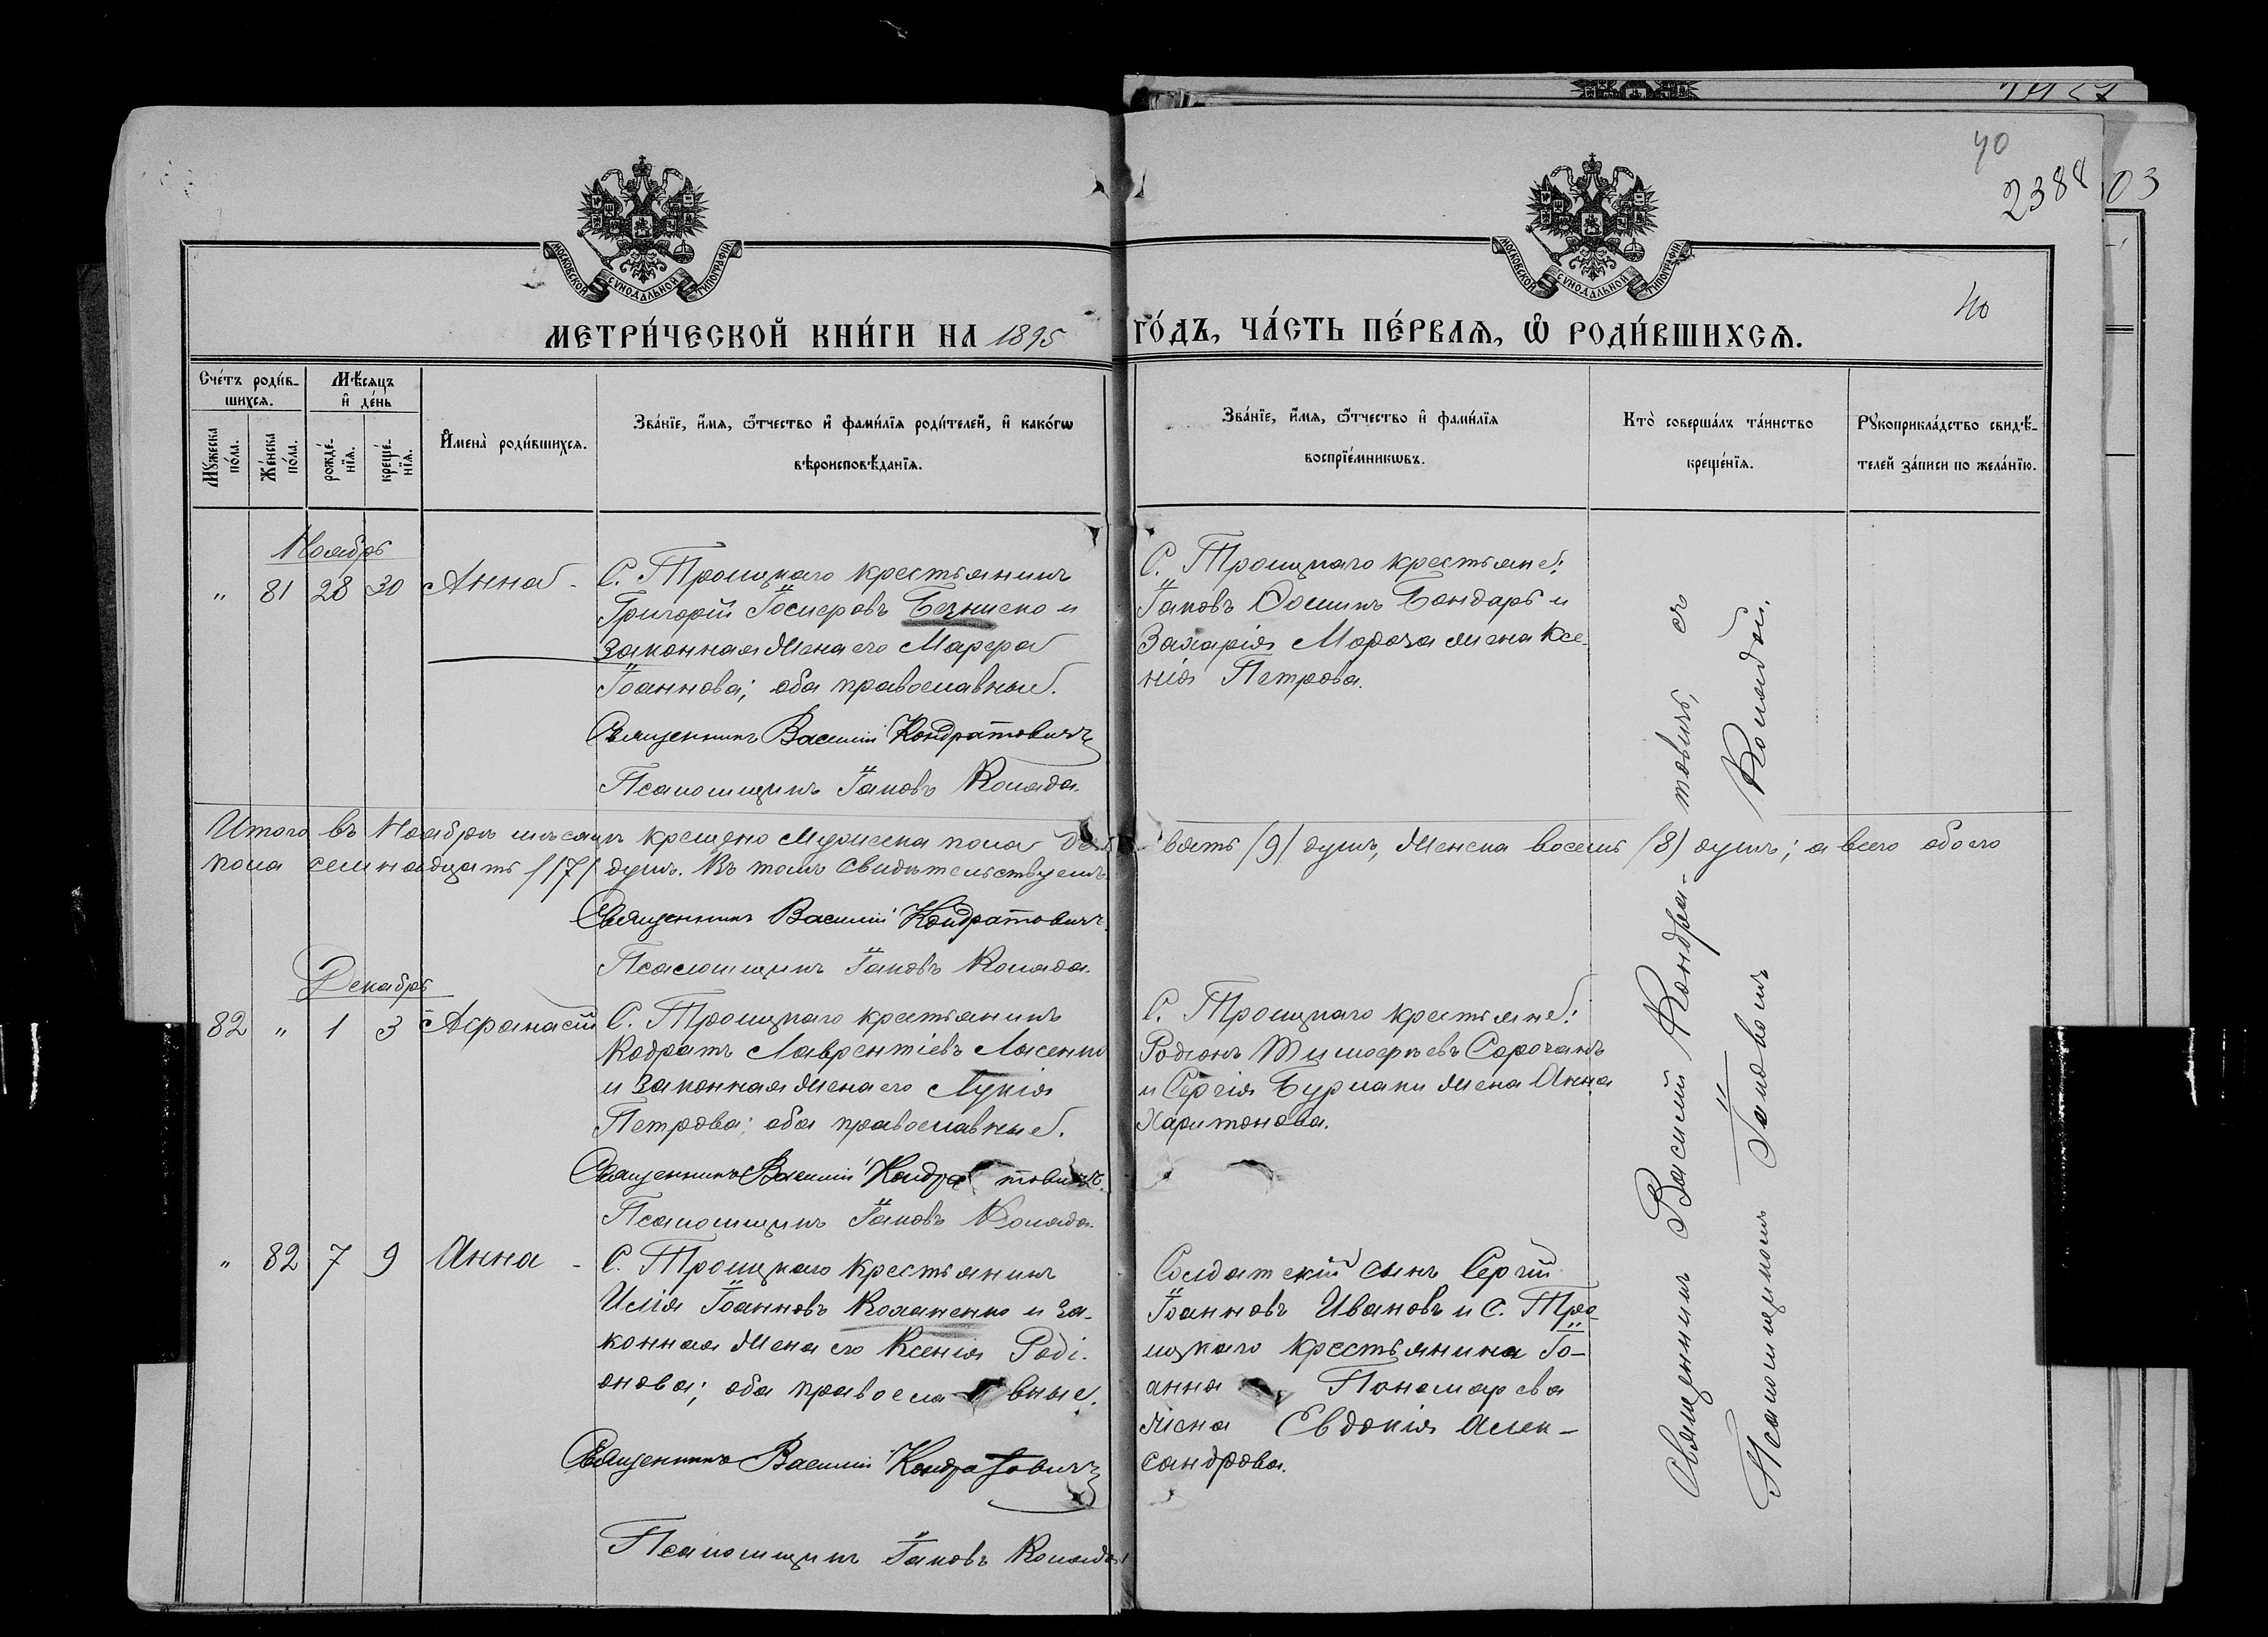 40
2388
03
МОСКОВСКОЙ СѴНОДАЛЬНОЙ ТИПОГРАФІИ
МОСКОВСКОЙ СѴНОДАЛЬНОЙ ТИПОГРАФІИ
40
МЕТРИ́ЧЕСКОЙ КНИ́ГИ НА 1895 ГО́ДЪ, ЧА́СТЬ ПЕ́РВАѦ, Ѡ҆ РОДИ́ВШИХСѦ.
Сче́тъ роди́в-
шихсѧ.
Мѣ́сѧцъ
и҆ де́нь
Мꙋ́жеска
по́ла.
Же́нска
по́ла.
рожде́-
нїѧ.
креще́-
нїѧ.
И҆мена̀ роди́вшихсѧ.
Зва́нїе, и҆́мѧ, ѻ҆́тчество и҆ фами́лїѧ роди́телей, и҆ како́гѡ
вѣроисповѣ́данїѧ.
Зва́нїе, и҆́мѧ, ѻ҆́тчество и҆ фами́лїѧ
воспрїе́мникѡвъ.
Кто̀ соверша́лъ та́инство
креще́нїѧ.
Рꙋкоприкла́дство свидѣ́-
телей за́писи по жела́нїю.
Ноябрь
" 81 28 30 Анна - С. Троицкаго крестьянинъ
Григорій Іосифовъ и
законная жена его Марфа
Іоаннова; оба православные.
Священникъ Василій Кондратовичъ
Псаломщикъ Іаковъ Колада.
С. Троицкаго крестьяне:
Іаковъ Ѳоминъ Бондарь и
Захарія Мороза жена Ксе-
нія Петрова.
Итого въ Ноябрѣ мѣсяцѣ крещено мужеска пола девять /9/ душъ, женска восемь /8/ душъ; а всего обоего
пола семнадцать /17/ душъ. Въ томъ свидѣтельствуемъ
Священникъ Василій Кондратовичъ.
Псаломщикъ Іаковъ Колада.
Декабрь
82 " 1 3 Афанасій С. Троицкаго крестьянинъ
Кодратъ Лаврентіевъ Лысенко
и законная жена его Лукія
Петрова; оба православные.
Священникъ Василій Кондратовичъ.
Псаломщикъ Іаковъ Колада.
С. Троицкаго крестьяне:
Родіонъ Тимофѣевъ Сорочанъ
и Сергія Бурлаки жена Анна
Харитонова.
" 82 7 9 Анна - С. Троицкаго крестьянинъ
Илія Іоанновъ Коланенко и за-
конная жена его Ксенія Роді-
онова; оба православные.
Священникъ Василій Кондратовичъ
Псаломщикъ Іаковъ Колада
Солдатскій сынъ Сергій
Іоанновъ Ивановъ и С. Тро-
ицкаго крестьянина Іо-
анна Пономарева
жена Евдокія Алек-
сандрова.
Священникъ Василій Кондра-
товичъ, съ
Псаломщикомъ Іаковомъ
Коладой.